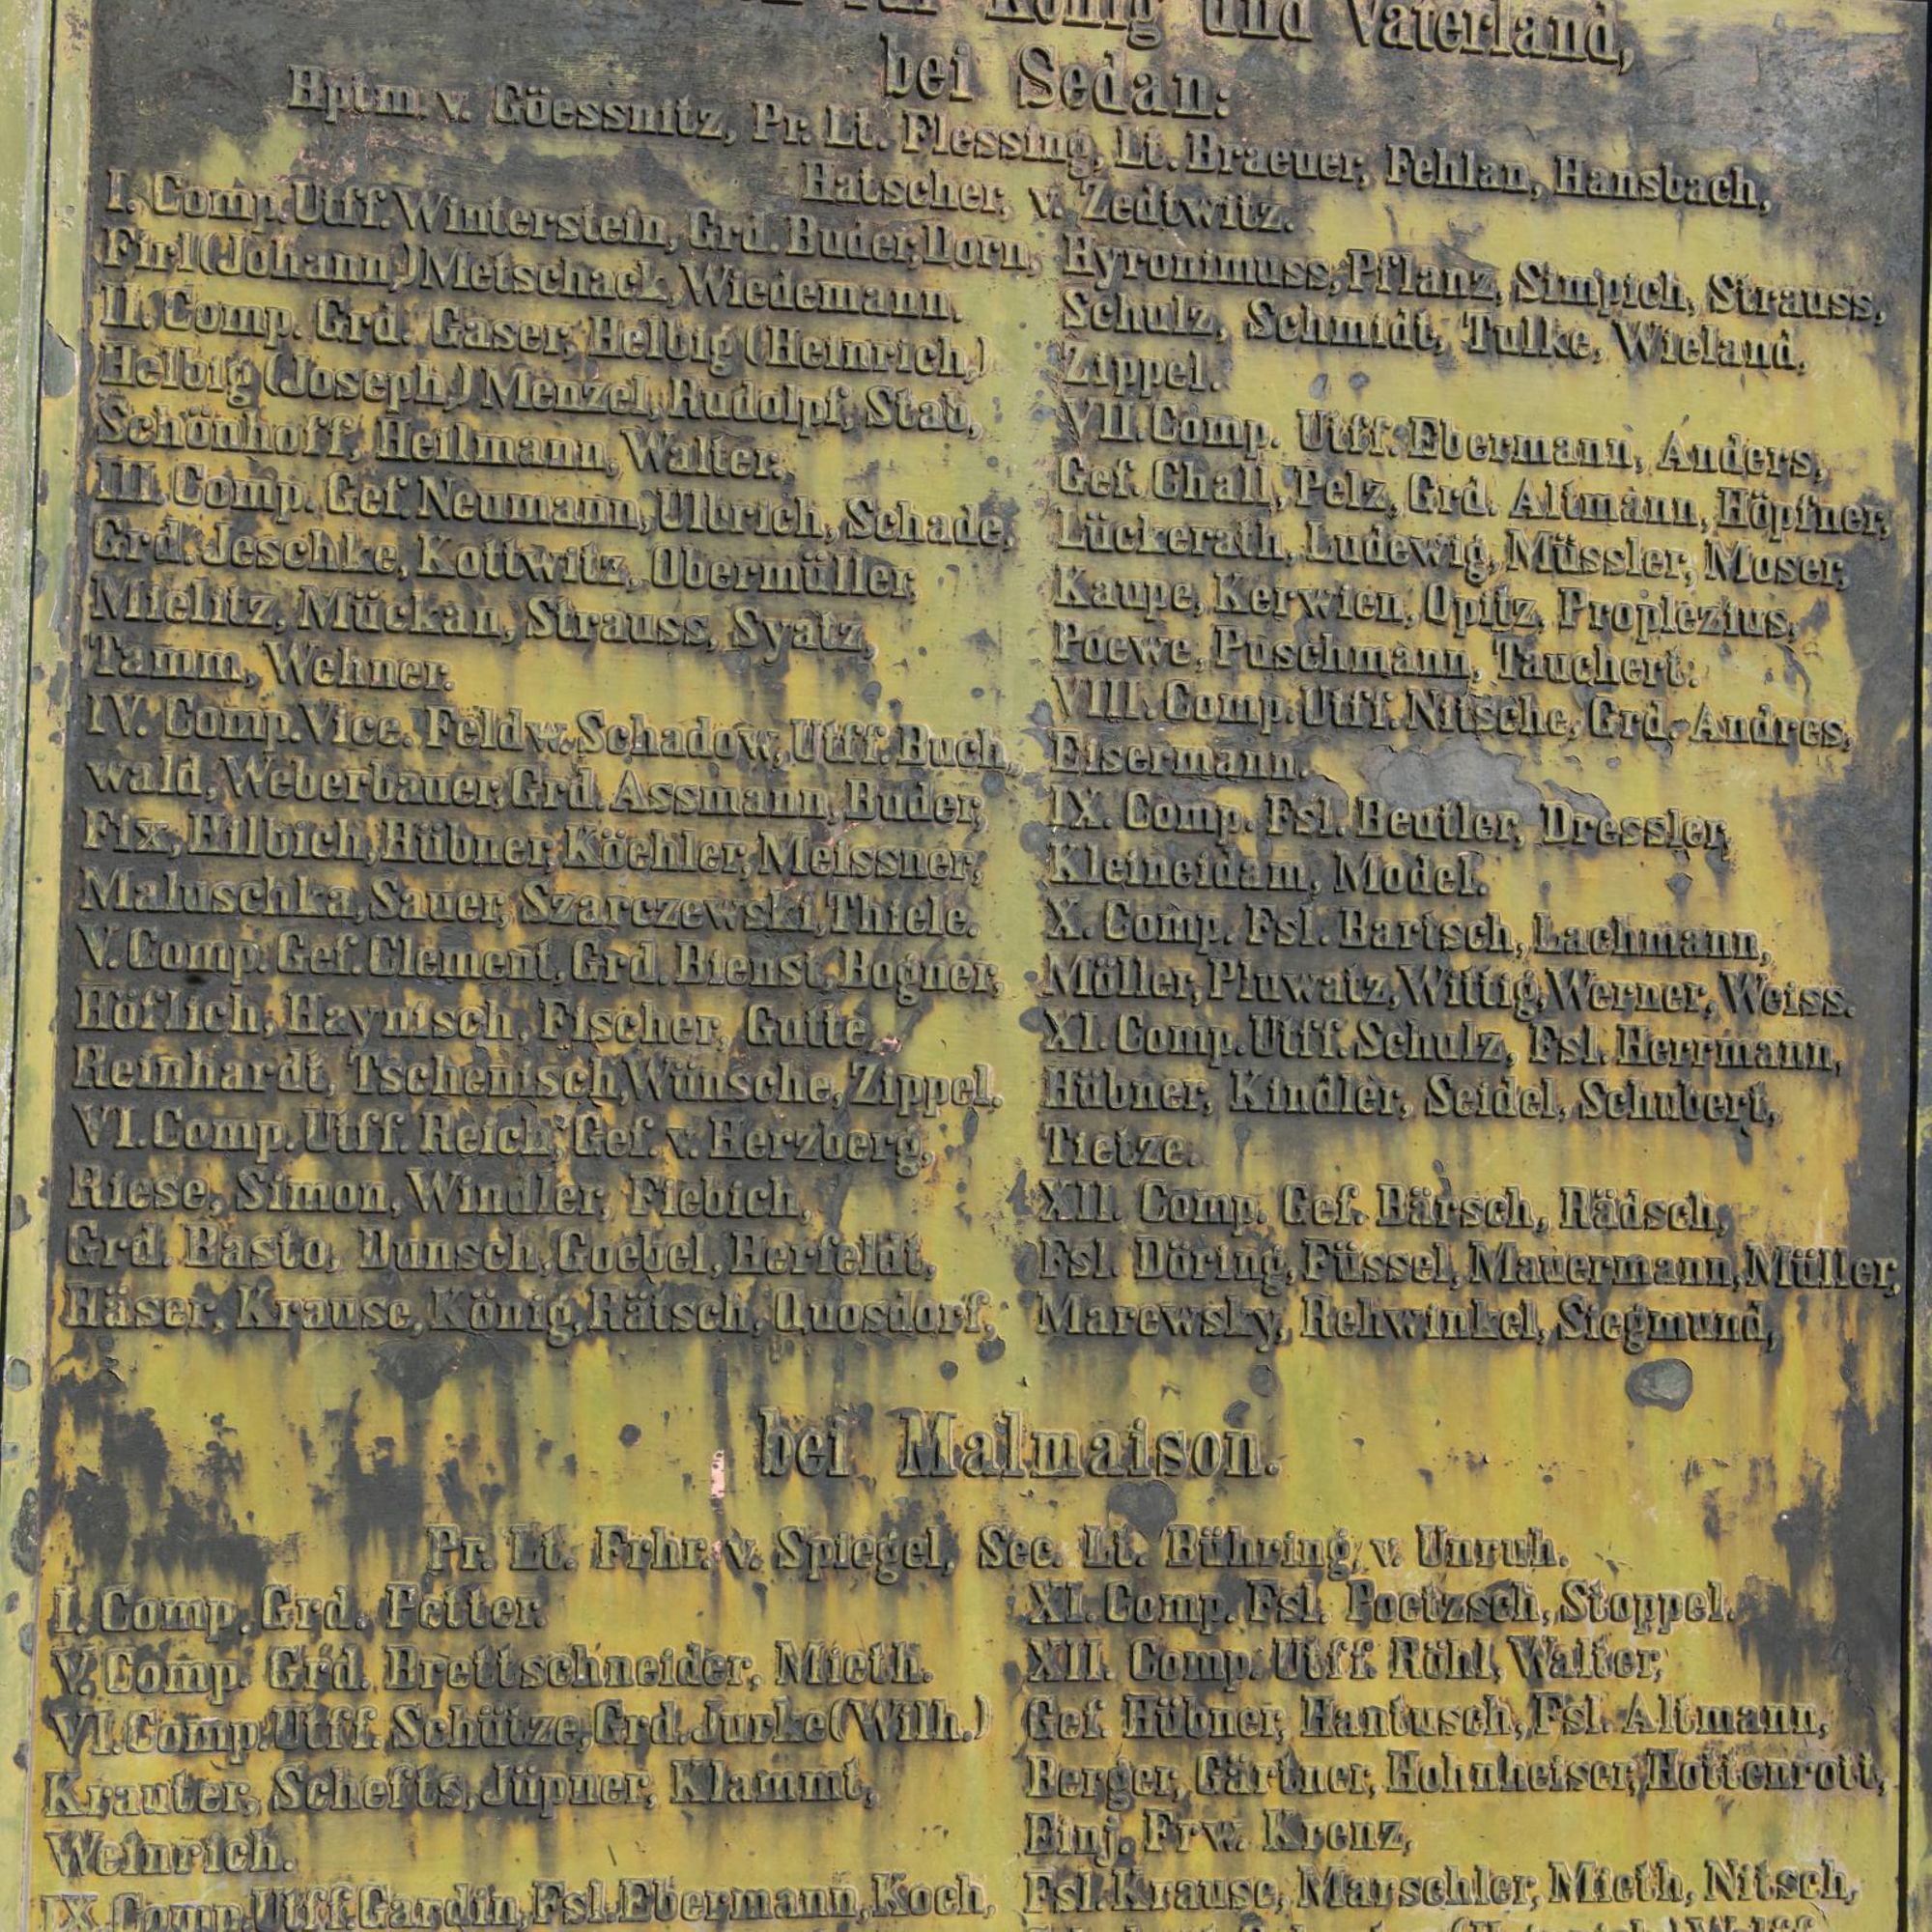 für König und Vaterland,
bei Sedan:
Hptm. v. Göessnitz, Pr. Lt. Flessing, Lt. Braeuer, Fehlan, Hansbach,
Hatscher, v. Zedtwitz.
I. Comp. Utff. Winterstein, Grd. Buder, Dorn,
Firl (Johann,) Metschack, Wiedemann.
II. Comp. Grd. Gaser, Helbig (Heinrich,)
Helbig (Joseph,) Menzel, Rudolpf, Stab,
Schönhoff, Heilmann, Walter.
III. Comp. Gef. Neumann, Ulbrich, Schade,
Grd. Jeschke, Kottwitz, Obermüller,
Mielitz, Mückan, Strauss, Syatz,
Tamm, Wehner.
IV. Comp. Vice. Feldw. Schadow, Utff. Buch,
wald, Weberbauer, Grd. Assmann, Buder,
Fix, Hilbich, Hübner, Köchler, Meissner,
Maluschka, Sauer, Szarczewski, Thiele.
V. Comp. Gef. Clement, Grd. Bienst, Bogner,
Höflich, Haynisch, Fischer, Gutte,
Reinhardt, Tschentsch, Wünsche, Zippel.
VI. Comp. Utff. Reich, Gef. v. Herzberg,
Riese, Simon, Windler, Fiebich,
Grd. Basto, Dunsch, Goebel, Herfeldt,
Häser, Krause, König, Rätsch, Quosdorf,
Hyronimuss, Pflanz, Simpich, Strauss,
Schulz, Schmidt, Tulke, Wieland,
Zippel.
VII. Comp. Utff. Ebermann, Anders,
Gef. Chall, Pelz, Grd. Altmann, Höpfner,
Lückerath, Ludewig, Müssler, Moser,
Kaupe, Kerwien, Opitz, Proplezius,
Poewe, Puschmann, Tauchert.
VIII. Comp. Utff. Nitsche, Grd. Andres,
Eisermann.
IX. Comp. Fsl. Beutler, Dressler,
Kleineidam, Model.
X. Comp. Fsl. Bartsch, Lachmann,
Möller, Pluwatz, Wittig, Werner, Weiss.
XI. Comp. Utff. Schulz, Fsl. Herrmann,
Hübner, Kindler, Seidel, Schubert,
Tietze.
XII. Comp. Gef. Bärsch, Rädsch,
Fsl. Döring, Füssel, Mauermann, Müller,
Marewsky, Rehwinkel, Siegmund,
bei Malmaison.
Pr. Lt. Frhr. v. Spiegel, Sec. Lt. Bühring, v. Unruh.
I. Comp. Grd. Petter.
V. Comp. Grd. Brettschneider, Mieth.
VI. Comp. Utff. Schütze, Grd. Jurke (Wilh.)
Krauter, Schefts, Jüpner, Klammt,
Weinrich.
IX. Comp. Utff. Gardin, Fsl. Ebermann, Koch,
XI. Comp. Fsl. Poetzsch, Stoppel.
XII. Comp. Utff. Röhl, Walter,
Gef. Hübner, Hantusch, Fsl. Altmann,
Berger, Gärtner, Hohnheiser, Hottenrott,
Einj. Frw. Krenz,
Fsl. Krause, Marschler, Mieth, Nitsch,